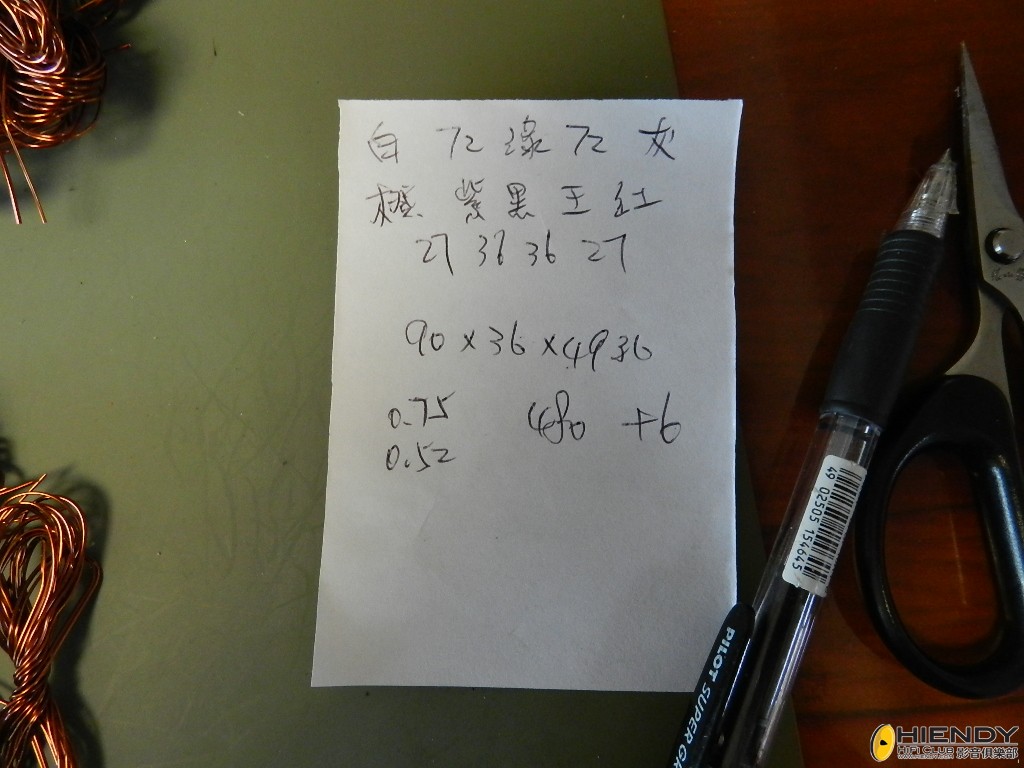 白 72 綠 72 灰
橙 紫 黑 王 红
27 36 36 27
90 x 36 x 4936
0.75 480 +6
0.52
49 02505 154645
PILOT SUPER GR
HIENDY
HIFI CLUB 影音俱樂部